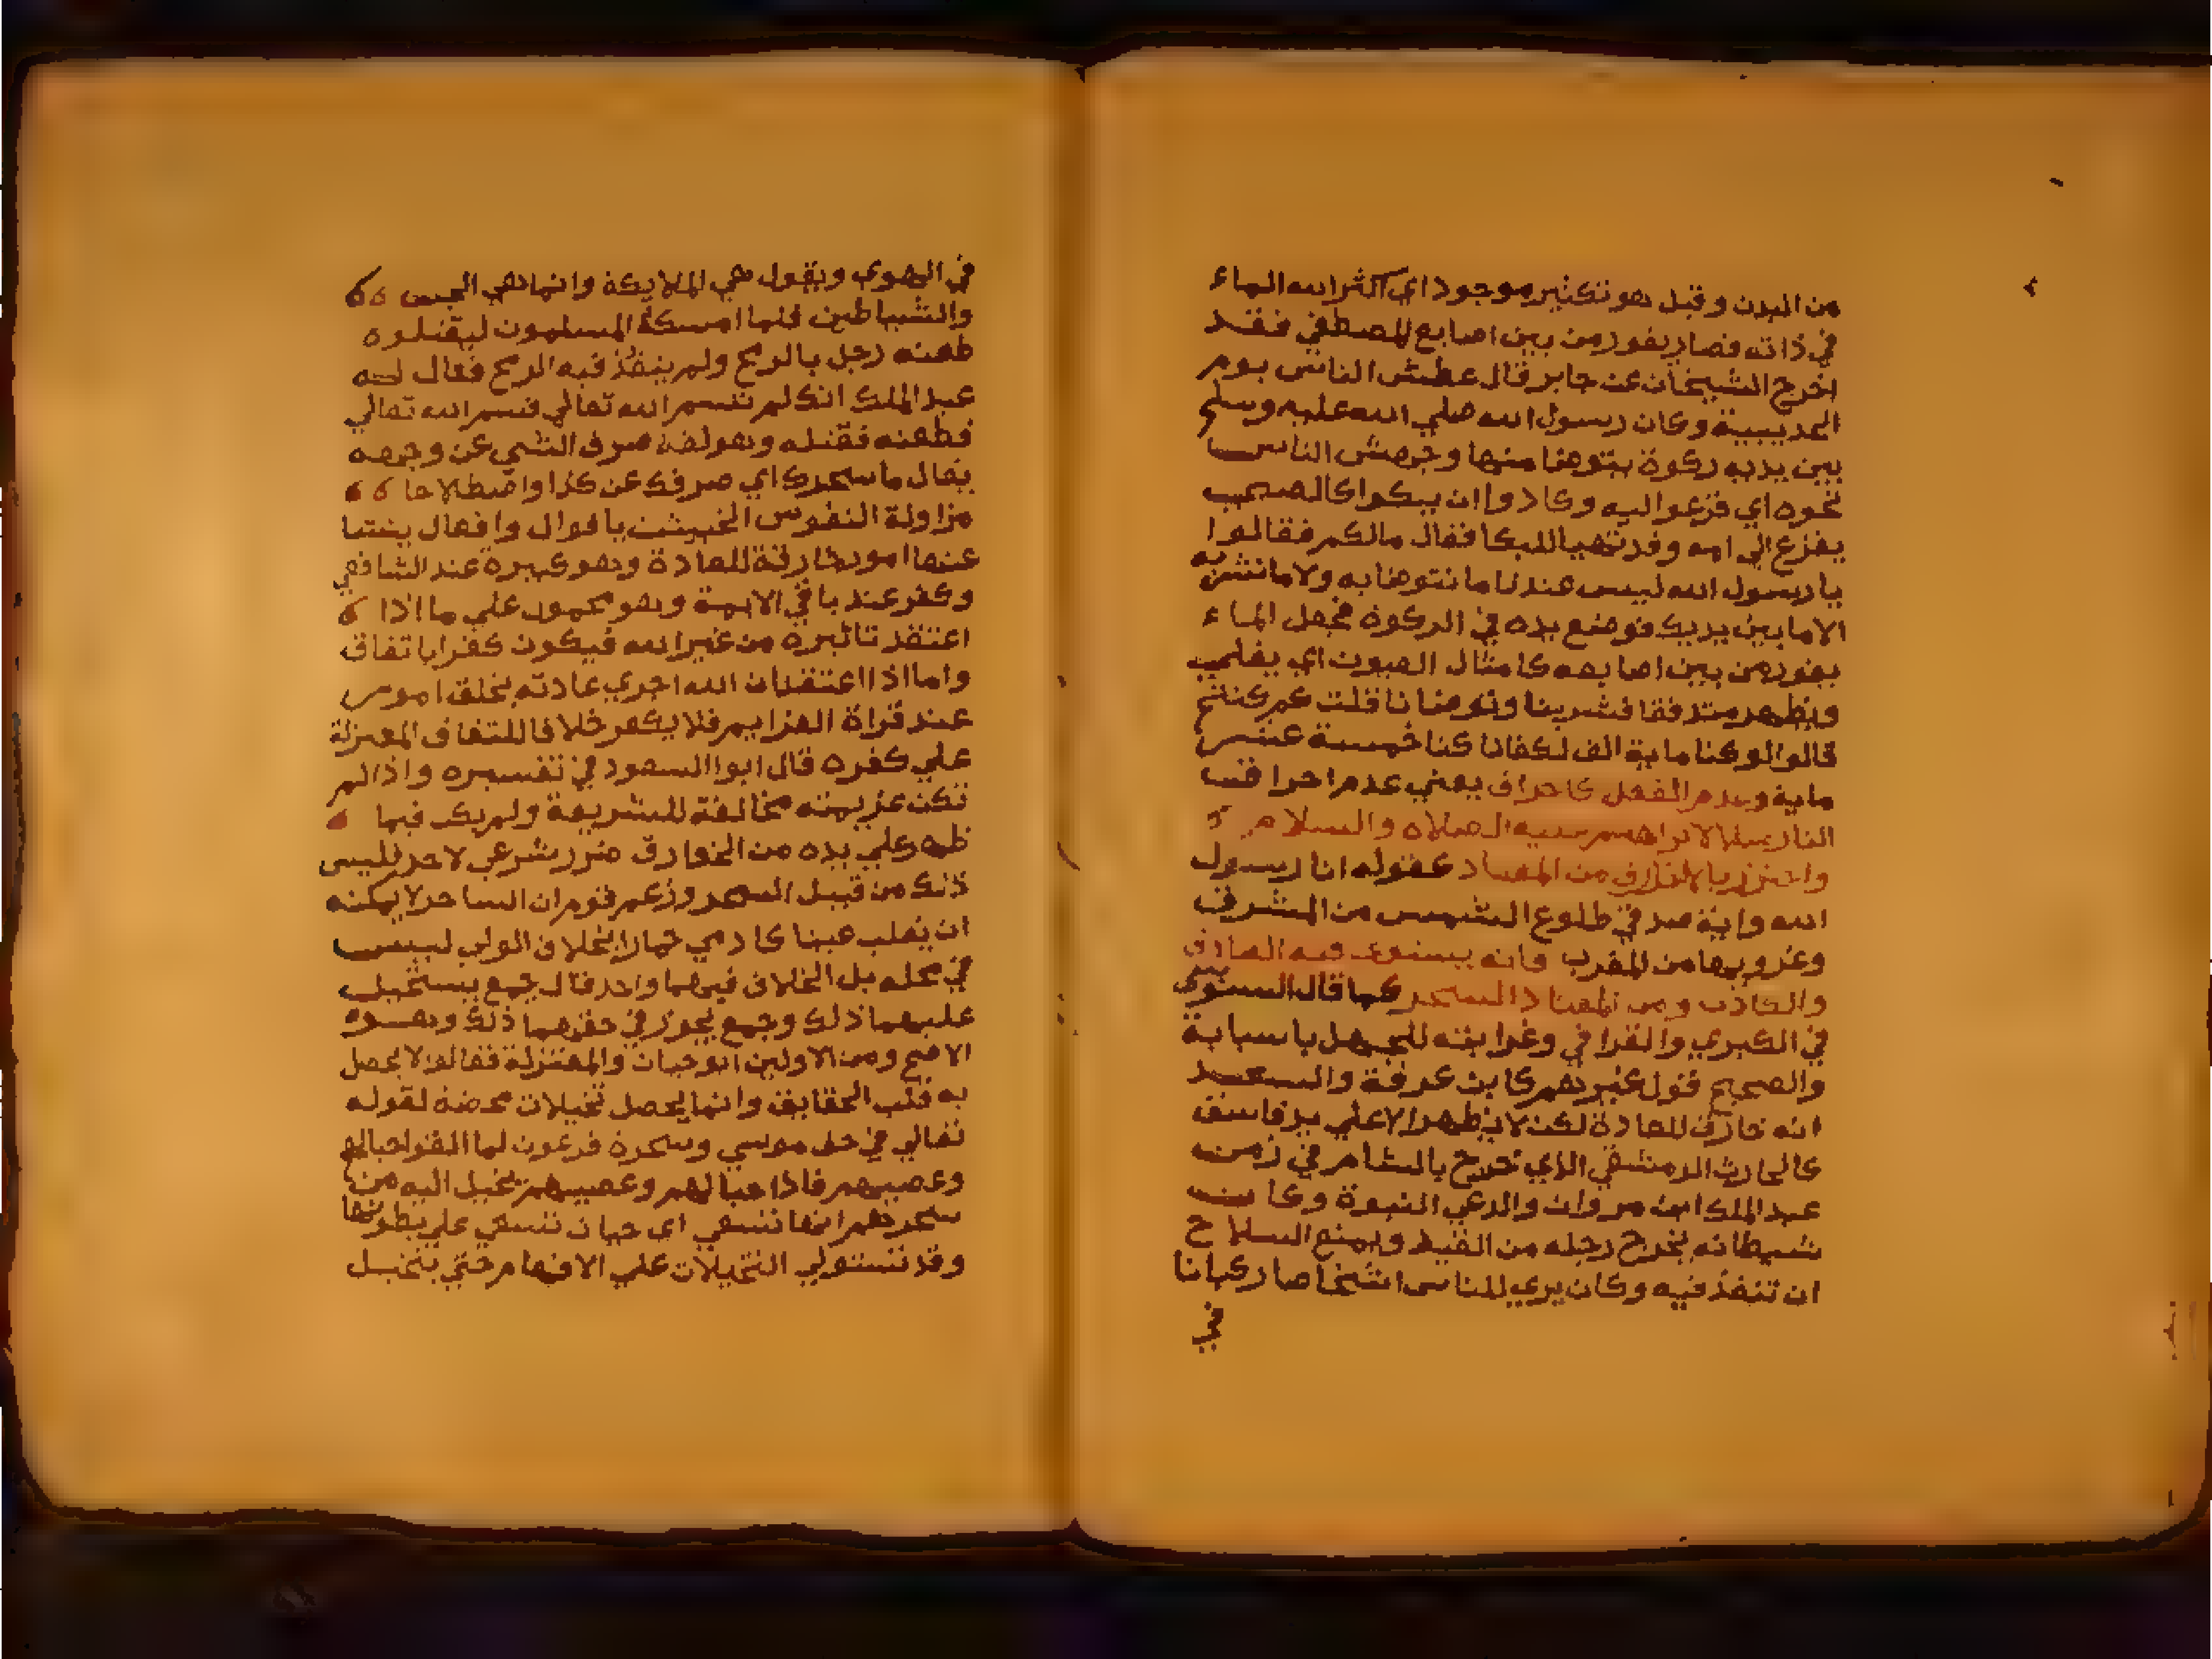 من اليدن وقيل هو تكثير موجود اي اكثر الله الماء
في ذاته فصار يفور من بين اصابع المصطفي فقد
اخرج الشيخان عن جابر قال عطش الناس يوم
الحديبية وكان رسول الله صلي الله عليه وسلم
بين يديه ركوة يتوضا منها وجهش الناس
نحوه اي فزعوا اليه وكادوا ان يبكوا كالصبي
يفزع الي امه وقد تهيا للبكا فقال مالكم فقالوا
يا رسول الله ليس عندنا ما نتوضا به ولا ما نشربه
الا ما بين يديك فوضع يده في الركوة فجعل الماء
يفور من بين اصابعه كامثال العيون اي يغلي
ويظهر متدفقا فشربنا وتوضانا قلت كم كنتم
قالوا لو كنا ماية الف لكفانا كنا خمسة عشر
ماية وعدم الفعل كاحراق يعني عدم احراق
النار سيدنا ابراهيم عليه الصلاه والسلام
واحترز بالخارق من المعتاد كقوله انا رسول
الله واية صدقي طلوع الشمس من المشرق
وغروبها من المغرب فانه يستوي فيه الصادق
والكاذب ومن المعتاد السحر كما قال السنوسي
في الكبري والقرافي وغرابته للجهل باسبابه
والصحيح قول غيرهم كابن عرفة والسعد
انه خارق للعادة لكن لا يظهر الا علي يد فاسق
كالحارث الدمشقي الذي خرج بالشام في زمن
عبد الملك ابن مروان وادعي النبوة وكانت
شيطانه يخرج رجله من القيد ويمنع السلاح
ان تنفذ فيه وكان يري للناس اشخاصا ركبانا
في
في الهوي ويقول هي الملايكة وانما هي الجن
والشياطين فلما امسكه المسلمون ليقتلوه
طعنه رجل بالرمح ولم ينفذ فيه الرمح فقال له
عبد الملك انك لم تسم الله تعالي فسم الله تعالي
فطعنه فقتله وهو لغة صرف الشي عن وجهه
يقال ما سحرك اي صرفك عن كذا واصطلاحا
مزاولة النفوس الخبيثة باقوال وافعال ينشا
عنها امور خارقة للعادة وهو كبيرة عند الشافعي
وكفر عند باقي الايمة وهو محمول علي ما اذا
اعتقد تاثيره من غير الله فيكون كفرا باتفاق
واما اذا اعتقد ان الله اجري عادته بخلق امور
عند قراة العزايم فلا يكفر خلافا للتفاق المعتزلة
علي كفره قال ابوا السعود في تفسيره واذا لم
تكن عزيمته مخالفة للشريعة ولم يكن فيما
ظهر علي يده من الخوارق ضرر شرعي لاحد فليس
ذلك من قبيل السحر وزعم قوم ان الساحر لا يمكنه
ان يقلب عينا كادمي حمارا بخلاف الولي ليس
في محله بل الخلاف فيهما واحد قال جمع يستحيل
عليهما ذلك وجمع يجوز في حقهما ذلك وهو
الاصح ومن الاولين ابو حيان والمعتزلة فقالوا لا يحصل
به قلب الحقايق وانما يحصل تخيلات محضة لقوله
تعالي في حق موسي وسحرة فرعون لما القوا حبالهم
وعصيهم فاذا حبالهم وعصيهم يخيل اليه من
سحرهم انها تسعي اي حيات تسعي علي بطونها
وقد تستولي التخيلات علي الافهام حتي يتخيل